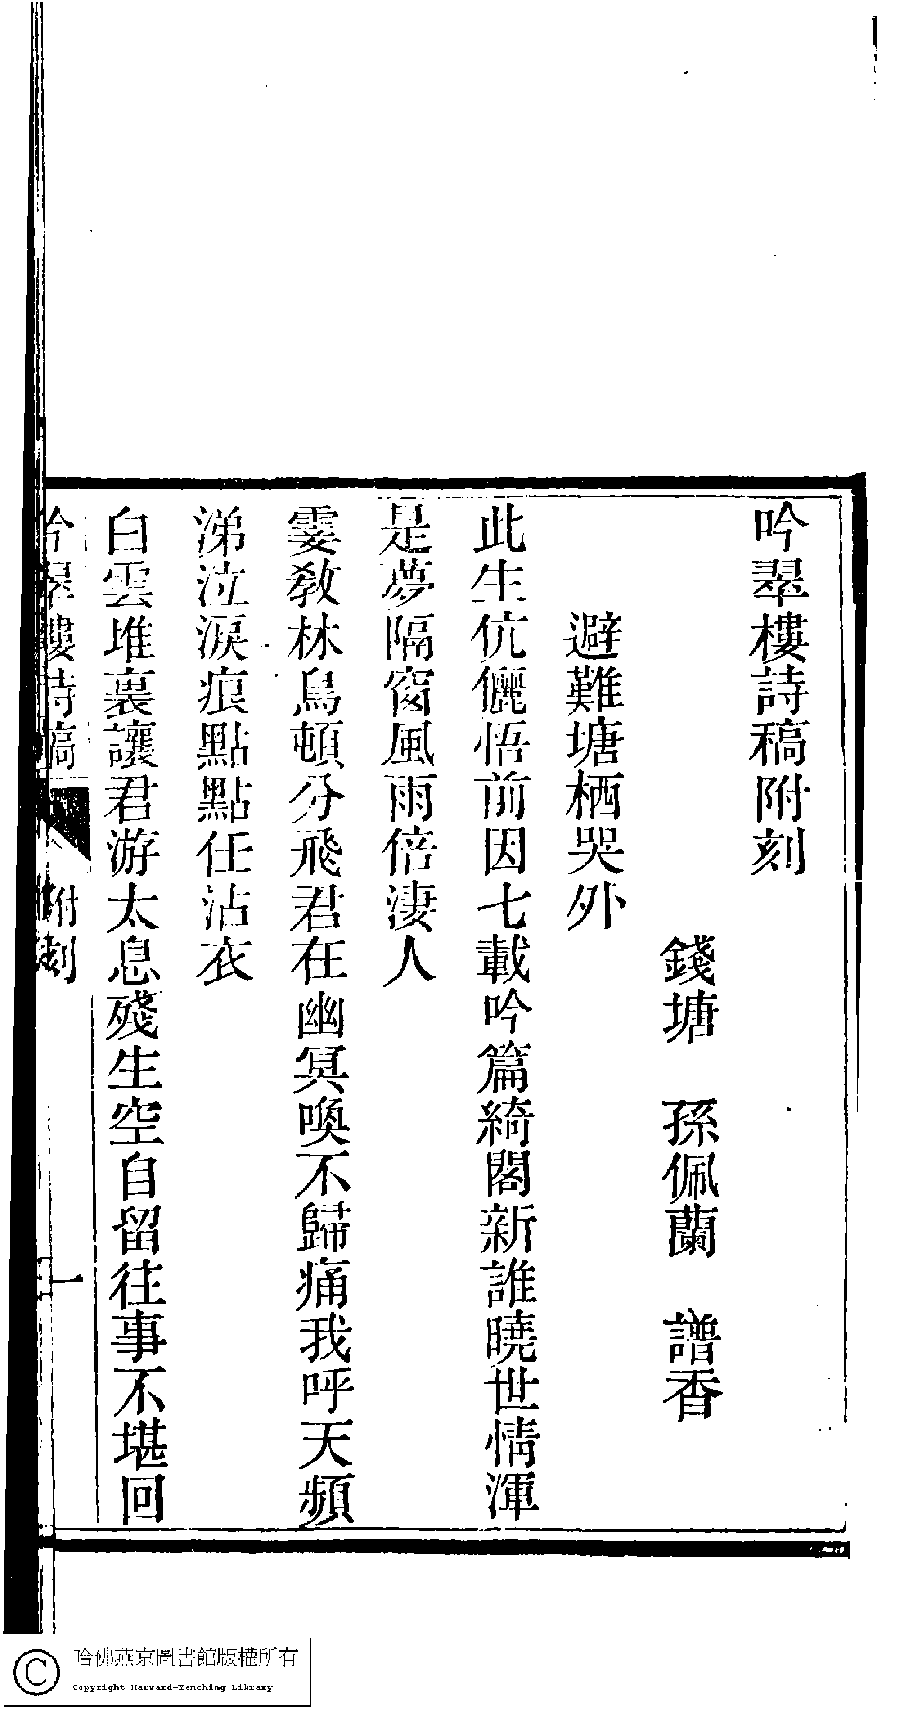 吟翠樓詩稿附刻
錢塘　孫佩蘭　譜香
避難塘栖哭外
此生伉儷悟前因七載吟篇綺閣新誰曉世情渾
是夢隔窗風雨倍淒人
霎教林鳥頓分飛君在幽冥喚不歸痛我呼天頻
涕泣淚痕點點任沾衣
白雲堆裏讓君游太息殘生空自留往事不堪回
吟翠樓詩稿
附刻
一
哈佛燕京圖書館版權所有
Copyright Harvard-Yenching Library